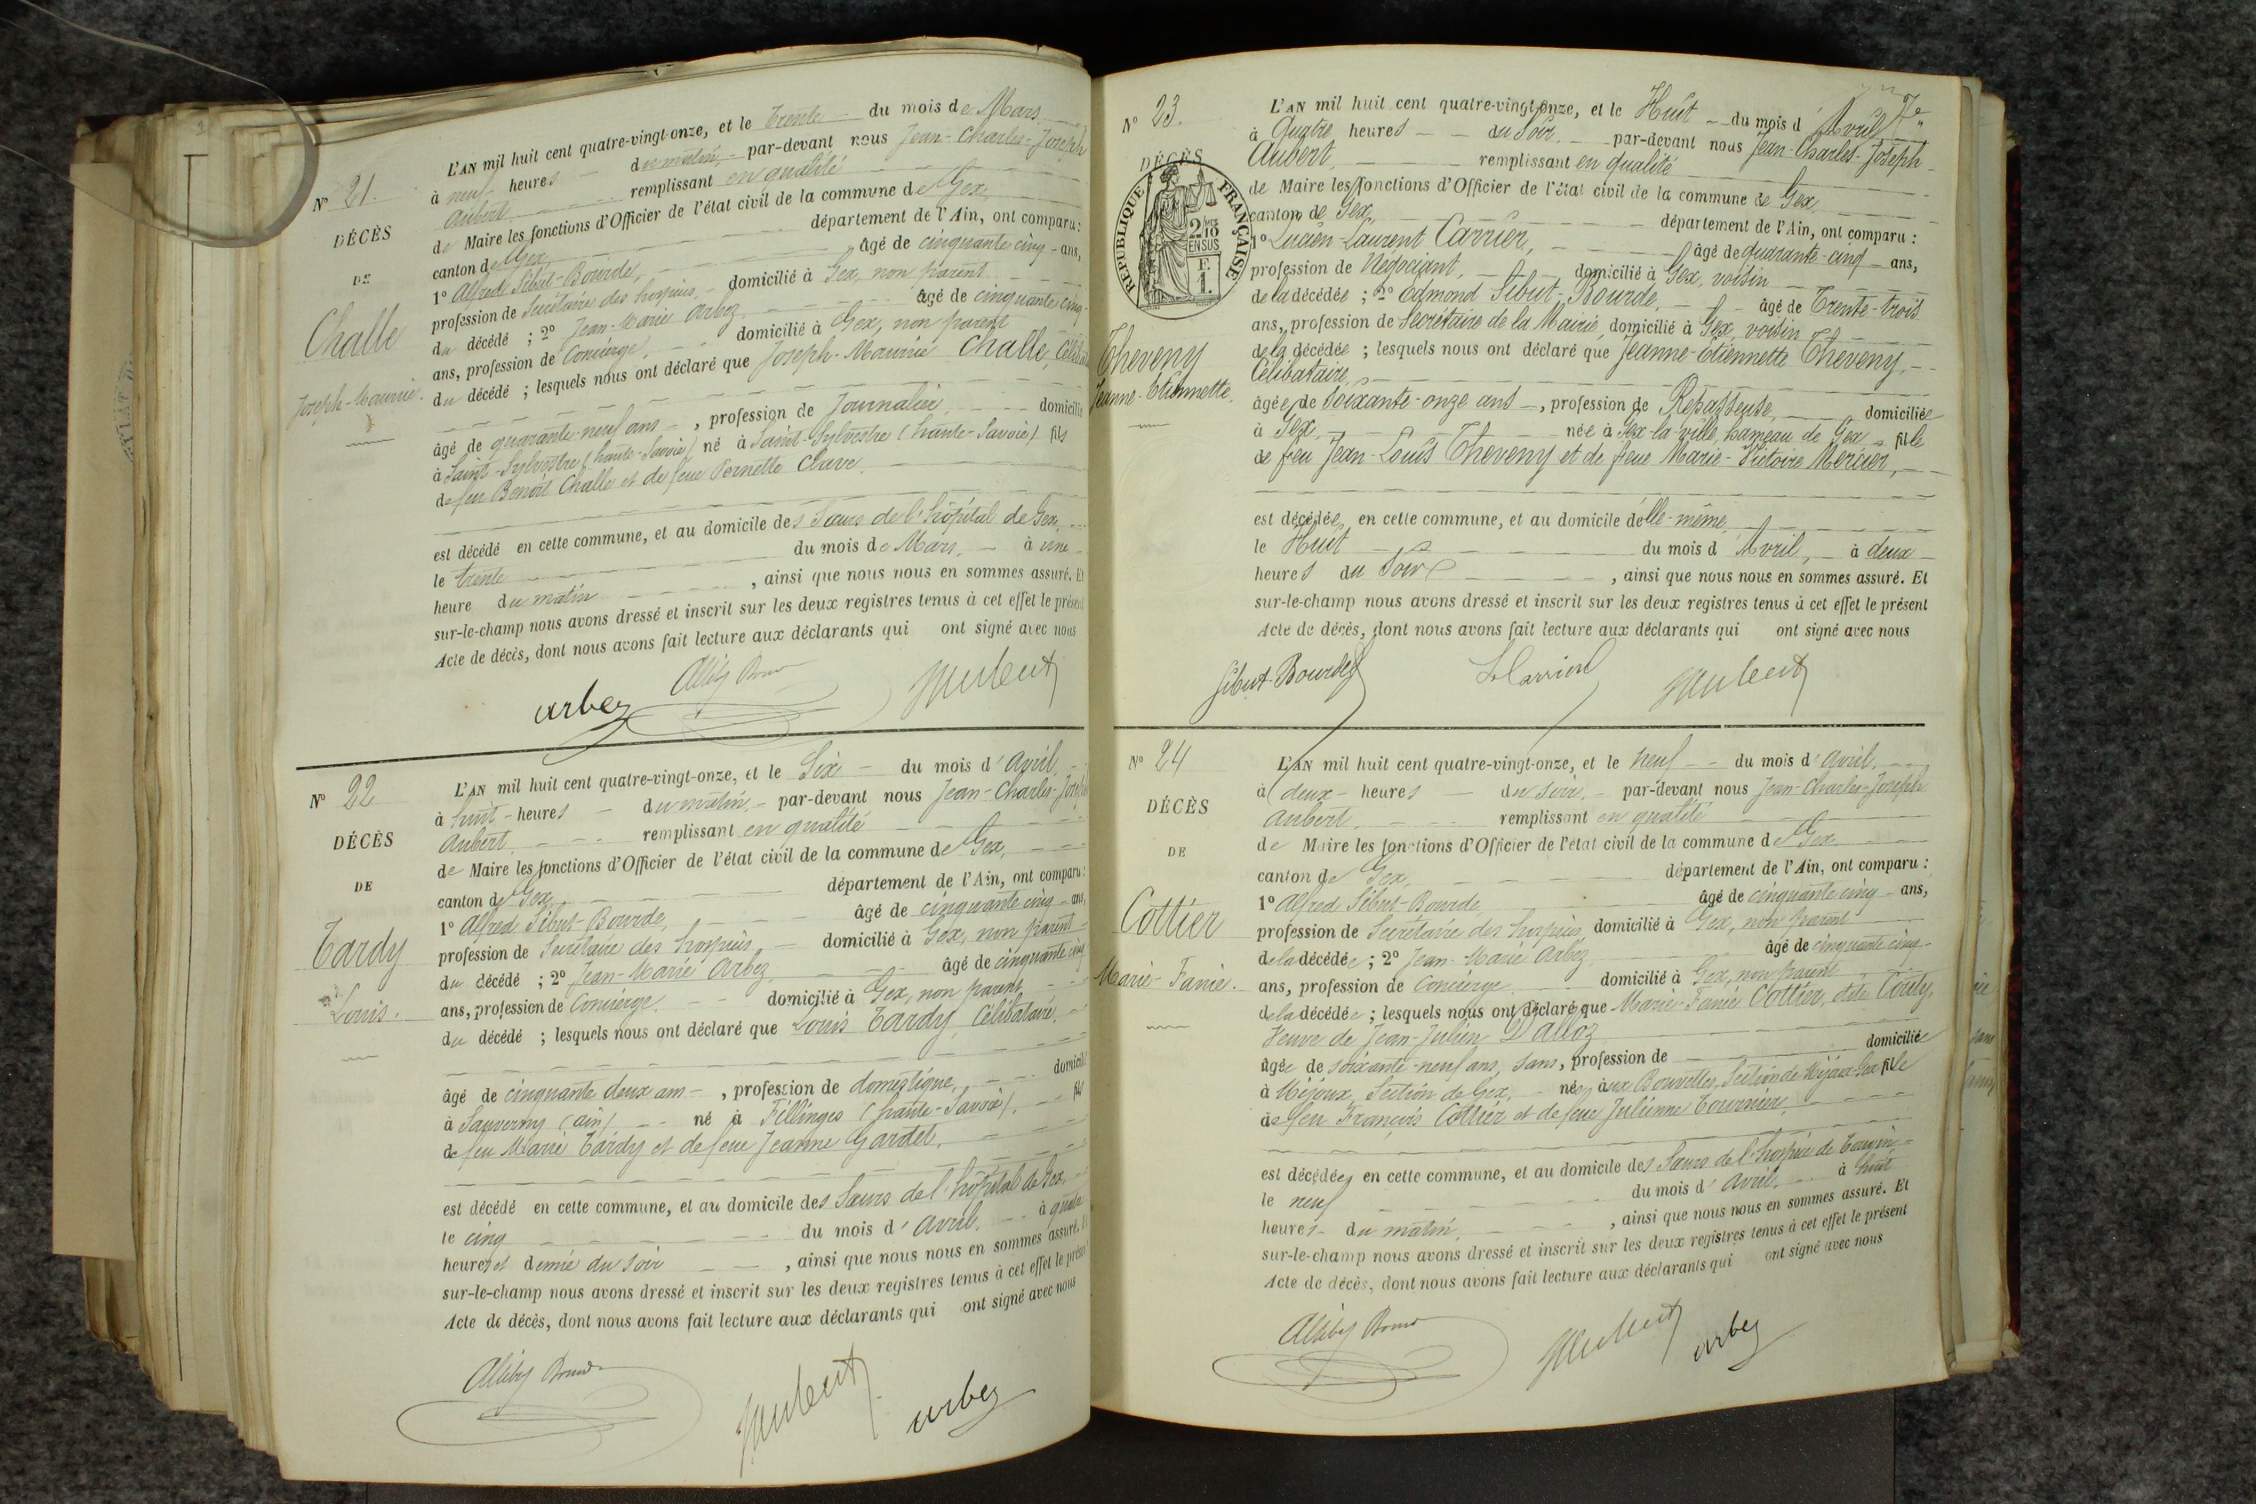 N° 21.
DÉCÈS
DE
Challe
Joseph-Maurice.
L'AN mil huit cent quatre-vingt-onze, et le trente du mois de Mars
à neuf heures du matin, par-devant nous Jean-Charles-Joseph
Aubert remplissant en qualité
de Maire les fonctions d'Officier de l'état civil de la commune de Gex,
canton de Gex, département de l'Ain, ont comparu :
1° Alfred Sibut-Bourde, âgé de cinquante cinq ans,
profession de Secrétaire des hospices, domicilié à Gex, non parent
du décédé ; 2° Jean-Marie Arbez âgé de cinquante cinq
ans, profession de Concierge, domicilié à Gex, non parent
du décédé ; lesquels nous ont déclaré que Joseph-Maurice Challe, Célibataire
âgé de quarante-neuf ans, profession de Journalier, domicilié
à Saint-Sylvestre (haute-Savoie) né à Saint-Sylvestre (haute-Savoie) fils
de feu Benoit Challe et de feue Pernette Clave.
est décédé en cette commune, et au domicile des Sœurs de l'hôpital de Gex,
le trente du mois de Mars, à une
heure du matin, ainsi que nous nous en sommes assuré. Et
sur-le-champ nous avons dressé et inscrit sur les deux registres tenus à cet effet le présent
Acte de décès, dont nous avons fait lecture aux déclarants qui ont signé avec nous
arbez JAubert
N° 22
DÉCÈS
DE
Tardy
Louis.
L'AN mil huit cent quatre-vingt-onze, et le Six du mois d'avril,
à huit heures du matin, par-devant nous Jean-Charles-Joseph
Aubert remplissant en qualité
de Maire les fonctions d'Officier de l'état civil de la commune de Gex,
canton de Gex, département de l'Ain, ont comparu :
1° Alfred Sibut-Bourde, âgé de cinquante cinq ans,
profession de Secrétaire des hospices, domicilié à Gex, non parent
du décédé ; 2° Jean-Marie Arbez âgé de cinquante cinq
ans, profession de Concierge domicilié à Gex, non parent,
du décédé ; lesquels nous ont déclaré que Louis Tardy, Célibataire,
âgé de cinquante deux ans, profession de domestique, domicilié
à Sauverny (ain) né à Fillinges (haute-Savoie), fils
de feu Marie Tardy et de feue Jeanne Gardet,
est décédé en cette commune, et au domicile des Sœurs de l'hôpital de Gex,
le cinq du mois d'avril, à quatre
heures et demie du soir, ainsi que nous nous en sommes assuré. Et
sur-le-champ nous avons dressé et inscrit sur les deux registres tenus à cet effet le présent
Acte de décès, dont nous avons fait lecture aux déclarants qui ont signé avec nous
JAubert arbez
N° 23.
DÉCÈS
RÉPUBLIQUE FRANÇAISE
2/10
EN SUS
F.
1.
Theveny
Jeanne-Etiennette.
7e
L'AN mil huit cent quatre-vingt-onze, et le Huit du mois d'Avril,
à Quatre heures du Soir, par-devant nous Jean-Charles-Joseph
Aubert, remplissant en qualité
de Maire les fonctions d'Officier de l'état civil de la commune de Gex,
canton de Gex, département de l'Ain, ont comparu :
1° Lucien-Laurent Carrier, âgé de quarante-cinq ans,
profession de Négociant, domicilié à Gex, voisin
de la décédée ; 2° Edmond Sibut-Bourde, âgé de Trente-trois
ans, profession de Secrétaire de la Mairie, domicilié à Gex, voisin
de la décédée ; lesquels nous ont déclaré que Jeanne-Etiennette Theveny,
Célibataire,
âgée de Soixante-onze ans, profession de Repasseuse, domiciliée
à Gex, née à Gex-la-ville, hameau de Gex, fille
de feu Jean-Louis Theveny et de feue Marie-Victoire Mercier,
est décédée, en cette commune, et au domicile d'elle-même
le Huit du mois d'Avril, à deux
heures du Soir, ainsi que nous nous en sommes assuré. Et
sur-le-champ nous avons dressé et inscrit sur les deux registres tenus à cet effet le présent
Acte de décès, dont nous avons fait lecture aux déclarants qui ont signé avec nous
Sibut-Bourde LCarrier JAubert
N° 24
DÉCÈS
DE
Cottier
Marie-Fanie.
L'AN mil huit cent quatre-vingt-onze, et le neuf du mois d'avril,
à deux heures du soir, par-devant nous Jean-Charles-Joseph
Aubert, remplissant en qualité
de Maire les fonctions d'Officier de l'état civil de la commune de Gex
canton de Gex, département de l'Ain, ont comparu :
1° Alfred Sibut-Bourde, âgé de cinquante cinq ans,
profession de Secrétaire des hospices, domicilié à Gex, non parent
de la décédée ; 2° Jean-Marie Arbez âgé de cinquante cinq
ans, profession de Concierge domicilié à Gex, non parent
de la décédée ; lesquels nous ont déclaré que Marie-Fanie Cottier, dite Couly,
Veuve de Jean-Julien Dalloz
âgée de soixante-neuf ans, sans, profession de domiciliée
à Mijoux, Section de Gex, née aux Bouvettes, Section de Mijoux-Gex fille
de feu François Cottier et de feue Julienne Tournier,
est décédée, en cette commune, et au domicile des Sœurs de l'hospice de Tourin
le neuf du mois d'avril, à huit
heures du matin, ainsi que nous nous en sommes assuré. Et
sur-le-champ nous avons dressé et inscrit sur les deux registres tenus à cet effet le présent
Acte de décès, dont nous avons fait lecture aux déclarants qui ont signé avec nous
JAubert arbez